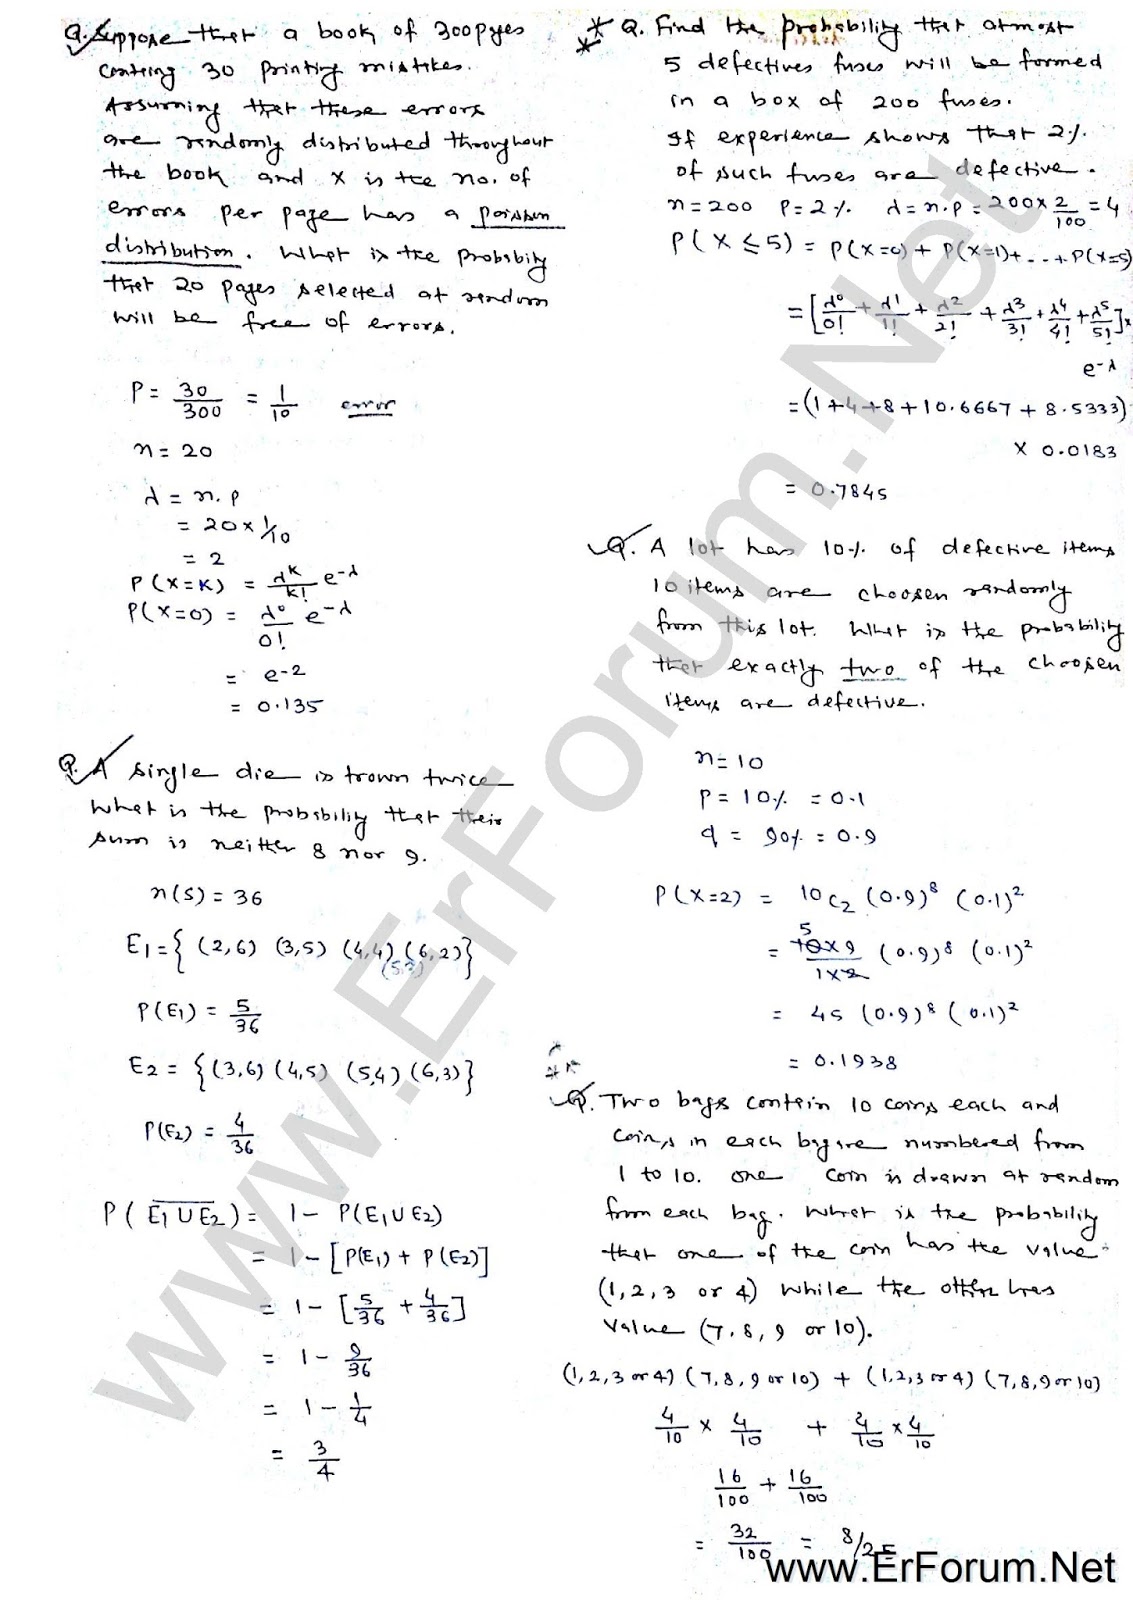 Q. Suppose that a book of 300 pages
contains 30 printing mistakes.
Assuming that these errors
are randomly distributed throughout
the book and x is the no. of
errors per page has a poisson
distribution. What is the probability
that 20 pages selected at random
will be free of errors.
P = 30/300 = 1/10 error
n = 20
λ = n.p
= 20 × 1/10
= 2
P(X=K) = λ^K/K! e^-λ
P(X=0) = λ^0/0! e^-λ
= e^-2
= 0.135
Q. A single die is trown twice
What is the probability that their
sum is neither 8 nor 9.
n(S) = 36
E1 = { (2,6) (3,5) (4,4) (6,2)}
(5,3)
P(E1) = 5/36
E2 = {(3,6) (4,5) (5,4) (6,3)}
P(E2) = 4/36
P(E1 ∪ E2) = 1 - P(E1 ∪ E2)
= 1 - [P(E1) + P(E2)]
= 1 - [5/36 + 4/36]
= 1 - 9/36
= 1 - 1/4
= 3/4
Q. Find the probability that atmost
5 defectives fuses will be formed
in a box of 200 fuses.
If experience shows that 2%
of such fuses are defective.
n=200 P=2% λ=n.p=200×2/100=4
P(X≤5) = P(X=0) + P(X=1)+ ... + P(X=5)
= [λ^0/0! + λ^1/1! + λ^2/2! + λ^3/3! + λ^4/4! + λ^5/5!] ×
e^-λ
= (1+4+8+10.6667+8.5333)
× 0.0183
= 0.7845
Q. A lot has 10% of defective items
10 items are choosen randomly
from this lot. What is the probability
that exactly two of the choosen
items are defective.
n=10
P = 10% = 0.1
q = 90% = 0.9
P(X=2) = 10C2 (0.9)^8 (0.1)^2
5
= 10×9/1×2 (0.9)^8 (0.1)^2
= 45 (0.9)^8 (0.1)^2
= 0.1938
Q. Two bags contain 10 coins each and
coins in each bag are numbered from
1 to 10. one coin is drawn at random
from each bag. What is the probability
that one of the coin has the value
(1,2,3 or 4) while the other has
value (7,8,9 or 10).
(1,2,3 or 4) (7,8,9 or 10) + (1,2,3 or 4) (7,8,9 or 10)
4/10 × 4/10 + 4/10 × 4/10
16/100 + 16/100
= 32/100 = 8/25
www.ErForum.Net
www.ErForum.Net